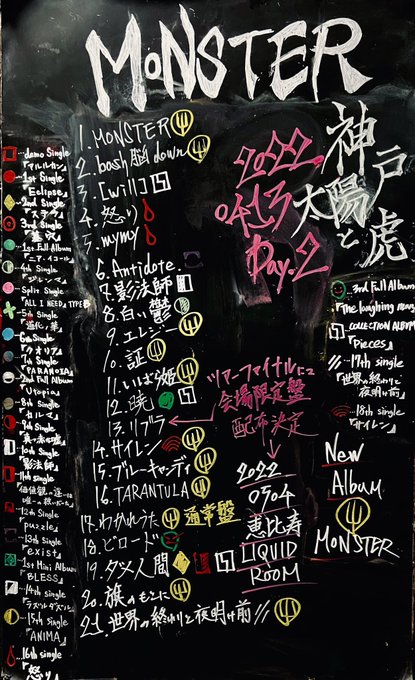 MONSTER
神戸
太陽と虎
2022
0413
Day.2
1. MONSTER
2. bash脳down
3. [will]
4. 怒り
5. mymy
6. Antidote.
7. 影法師
8. 白い鬱
9. エレジー
10. 証
11. いばら姫
12. 暁
13. リブラ
14. サイレン
15. ブルーキャンディ
16. TARANTULA
17. わかれうた 通常盤
18. ビロード
19. ダメ人間
20. 旗のもとに
21. 世界の終わりと夜明け前
ツアーファイナルにて
会場限定盤
配布決定
2022
0504
恵比寿
LIQUID
ROOM
…demo Single
『マルルカン』
…1st Single
『Eclipse』
…2nd Single
『ステラ』
…3rd Single
…1st Full Album
『ニア・イコール』
…4th Single
…Split Single
『ALL I NEED』TYPE B
…5th Single
『進化ノ葉』
…6th Single
『クオリア』
…7th Single
『PARANOIA』
…2nd Full Album
『Utopia』
…8th Single
…9th Single
『真っ赤な嘘』
…10th Single
『影法師』
…11th Single
…12th Single
『puzzle』
…13th Single
『exist』
…1st Mini Album
『BLESS』
…14th Single
『ラズルダズル』
…15th Single
『ANIMA』
…16th Single
『怒り』
…3rd Full Album
『The laughing man』
…COLLECTION ALBUM
『Pieces』
…17th single
『世界の終わりと
夜明け前』
…18th Single
『サイレン』
New
Album
MONSTER